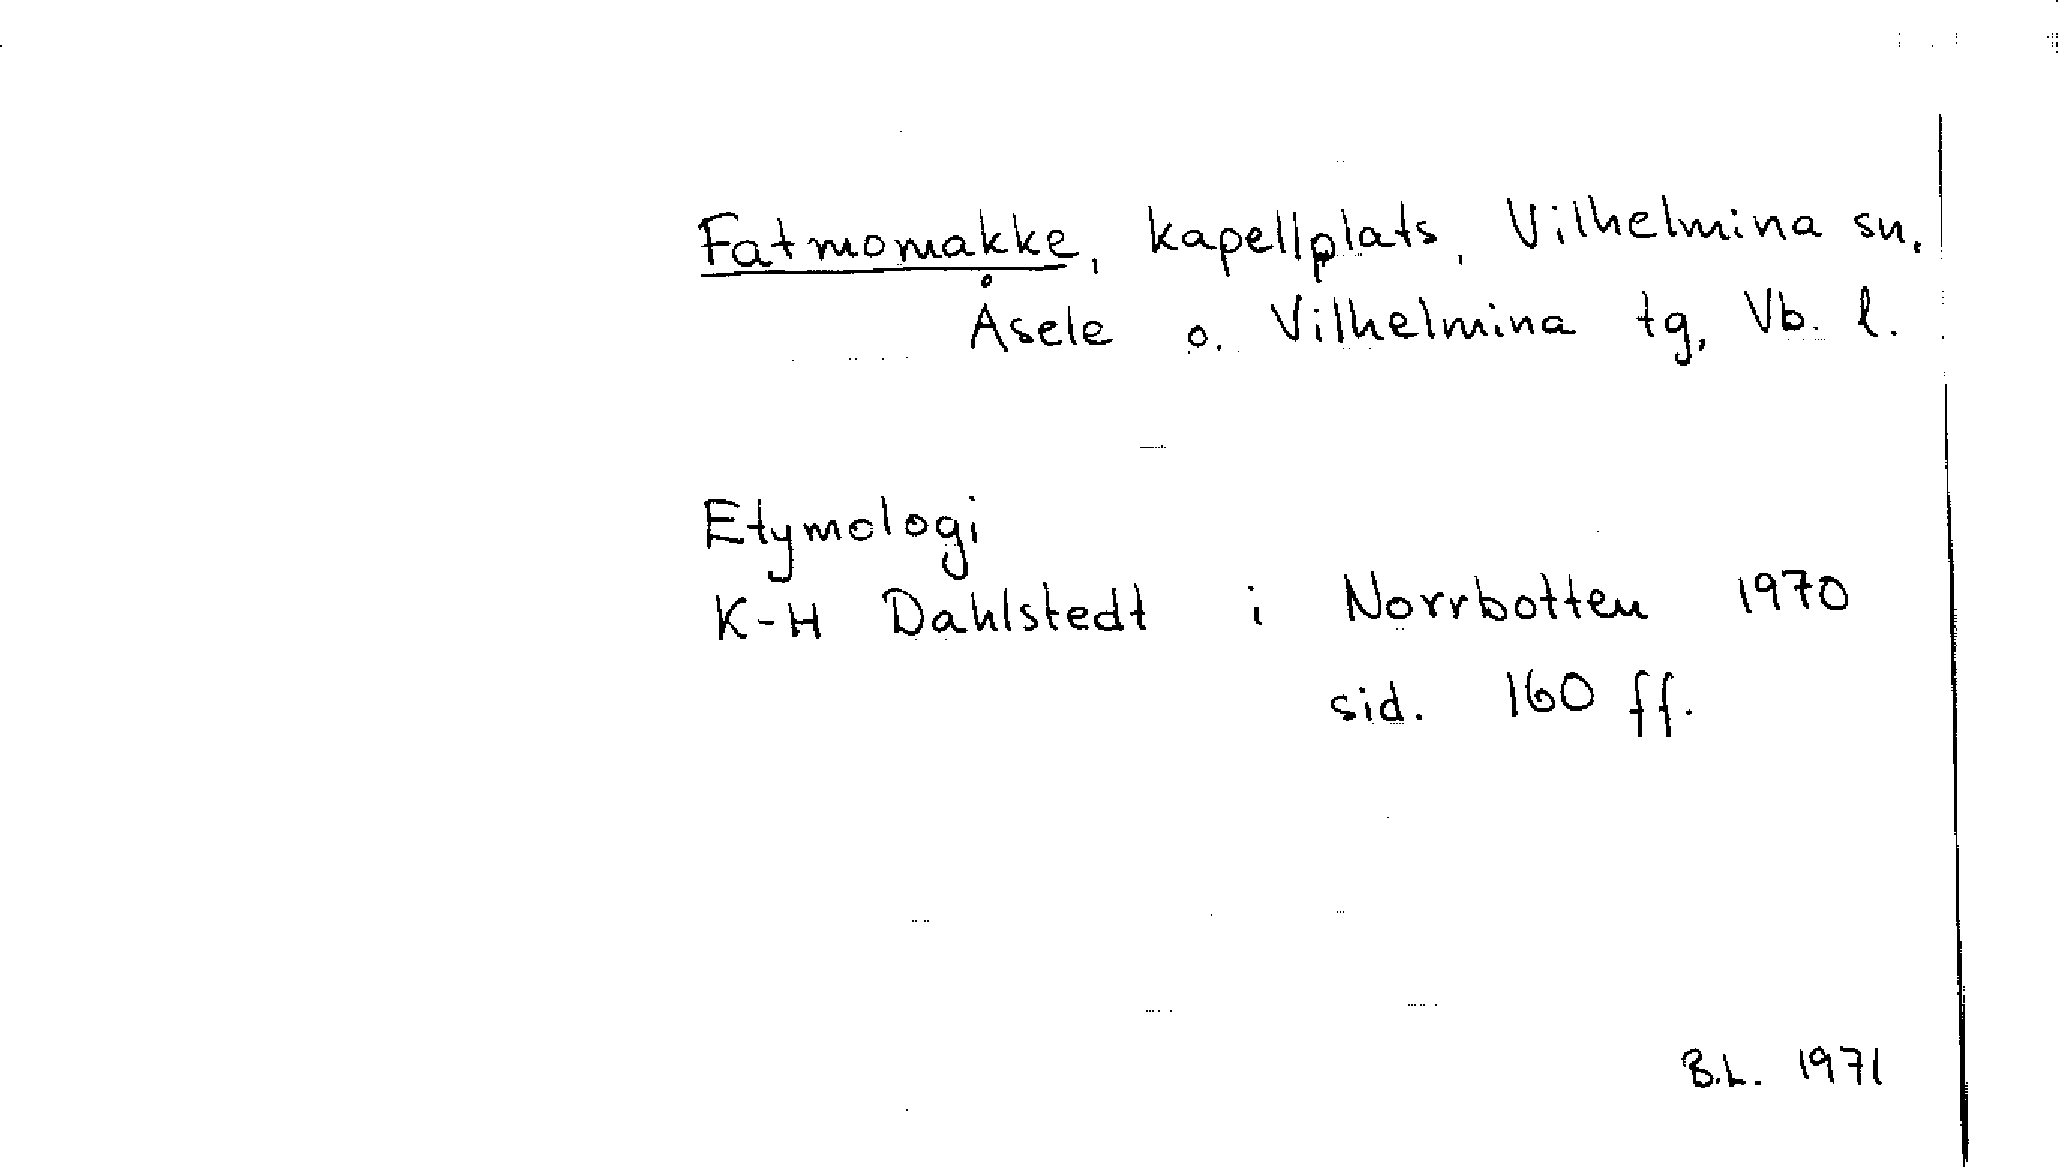 Fatmomakke, kapellplats, Vilhelmina sn,
Åsele o. Vilhelmina tg, Vb. l.
Etymologi
K-H Dahlstedt i Norrbotten 1970
sid. 160 ff.
B.L. 1971